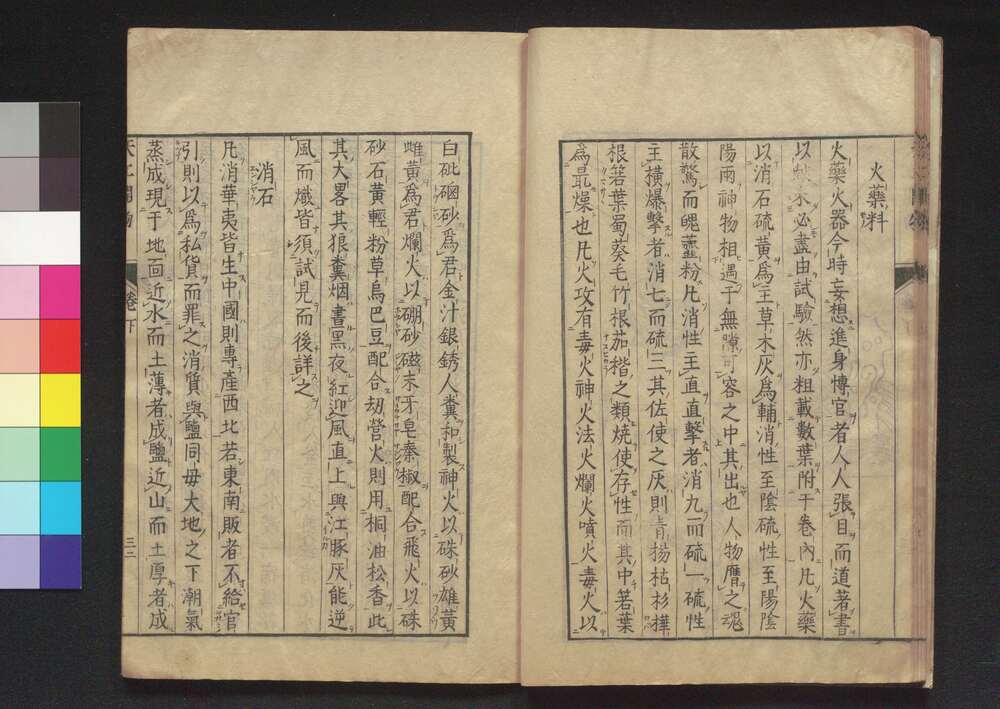 火藥料
火藥火器今時妄想進身博官者人人張目而道著書
以獻未必盡由試驗然亦粗載數葉附于卷內凡火藥
以消石硫黃爲主草木灰爲輔消性至陰硫性至陽陰
陽兩神物相遇于無隙可容之中其出也人物膺之魂
散驚而魄虀粉凡消性主直直擊者消九而硫一硫性
主橫爆擊者消七而硫三其佐使之灰則青揚枯杉樺
根箬葉蜀葵毛竹根茄稭之類燒使存性而其中箬葉
爲最燥也凡火攻有毒火神火法火爛火噴火毒火以
白砒硇砂爲君金汁銀銹人糞和製神火以硃砂雄黃
雌黃爲君爛火以硼砂磁末牙皂秦椒配合飛火以硃
砂石黃輕粉草烏巴豆配合刼營火則用桐油松香此
其大畧其狼糞烟晝黑夜紅迎風直上與江豚灰能逆
風而熾皆須試見而後詳之
消石
凡消華夷皆生中國則專產西北若東南販者不給官
引則以爲私貨而罪之消質與鹽同毋大地之下潮氣
蒸成現于地面近水而土薄者成鹽近山而土厚者成
天工開物 卷下 三三